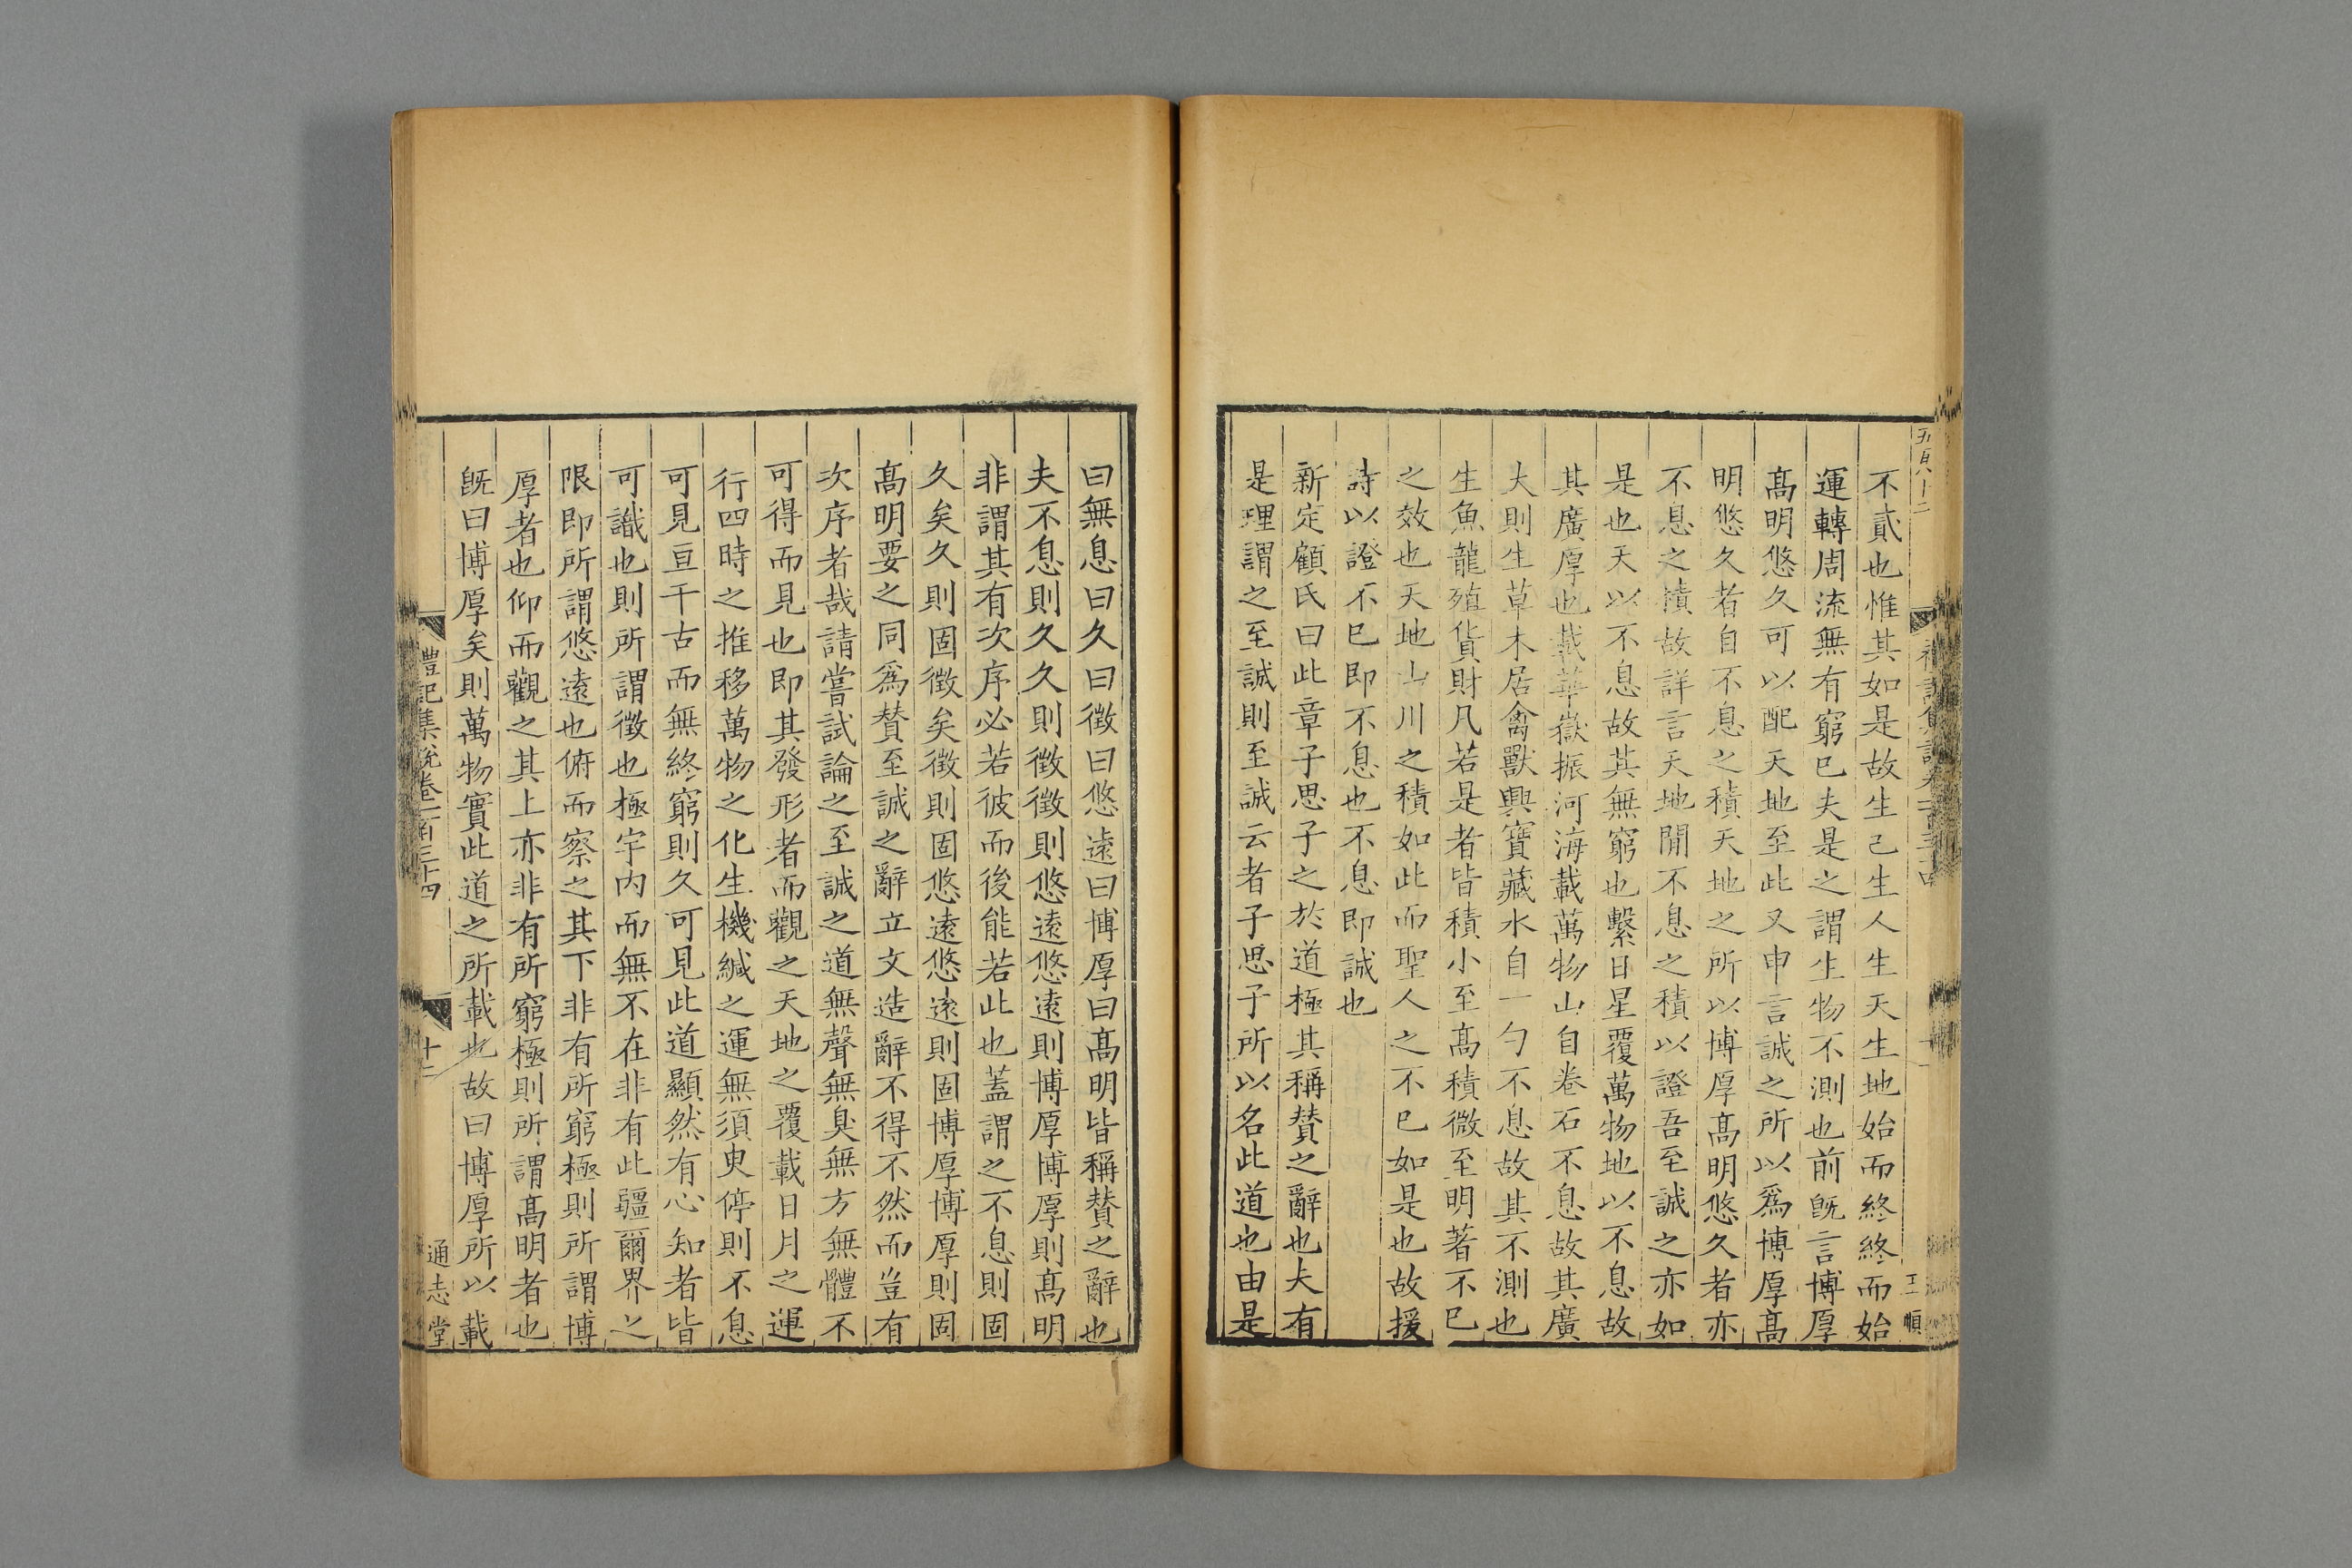 五百八十二
不貳也惟其如是故生己生人生天生地始而終終而始
運轉周流無有窮已夫是之謂生物不測也前旣言博厚
髙明悠久可以配天地至此又申言誠之所以爲博厚髙
明悠久者自不息之積天地之所以博厚髙明悠久者亦
不息之積故詳言天地閒不息之積以證吾至誠之亦如
是也天以不息故其無窮也繫日星覆萬物地以不息故
其廣厚也載華嶽振河海載萬物山自卷石不息故其廣
大則生草木居禽獸興寶藏水自一勺不息故其不測也
生魚龍殖貨財凡若是者皆積小至髙積微至明著不已
之效也天地山川之積如此而聖人之不已如是也故援
詩以證不已即不息也不息即誠也
新定顧氏曰此章子思子之於道極其稱賛之辭也夫有
是理謂之至誠則至誠云者子思子所以名此道也由是
曰無息曰久曰徴曰悠遠曰博厚曰髙明皆稱賛之辭也
夫不息則久久則徴徴則悠遠悠遠則博厚博厚則髙明
非謂其有次序必若彼而後能若此也蓋謂之不息則固
久矣久則固徴矣徴則固悠遠悠遠則固博厚博厚則固
髙明要之同爲賛至誠之辭立文造辭不得不然而豈有
次序者哉請嘗試論之至誠之道無聲無臭無方無體不
可得而見也即其發形者而觀之天地之覆載日月之運
行四時之推移萬物之化生機緘之運無須臾停則不息
可見亘千古而無終窮則久可見此道顯然有心知者皆
可識也則所謂徴也極宇内而無不在非有此疆爾界之
限即所謂悠遠也俯而察之其下非有所窮極則所謂博
厚者也仰而觀之其上亦非有所窮極則所謂髙明者也
旣曰博厚矣則萬物實此道之所載也故曰博厚所以載
禮記集説卷一百三十四
十二
通志堂